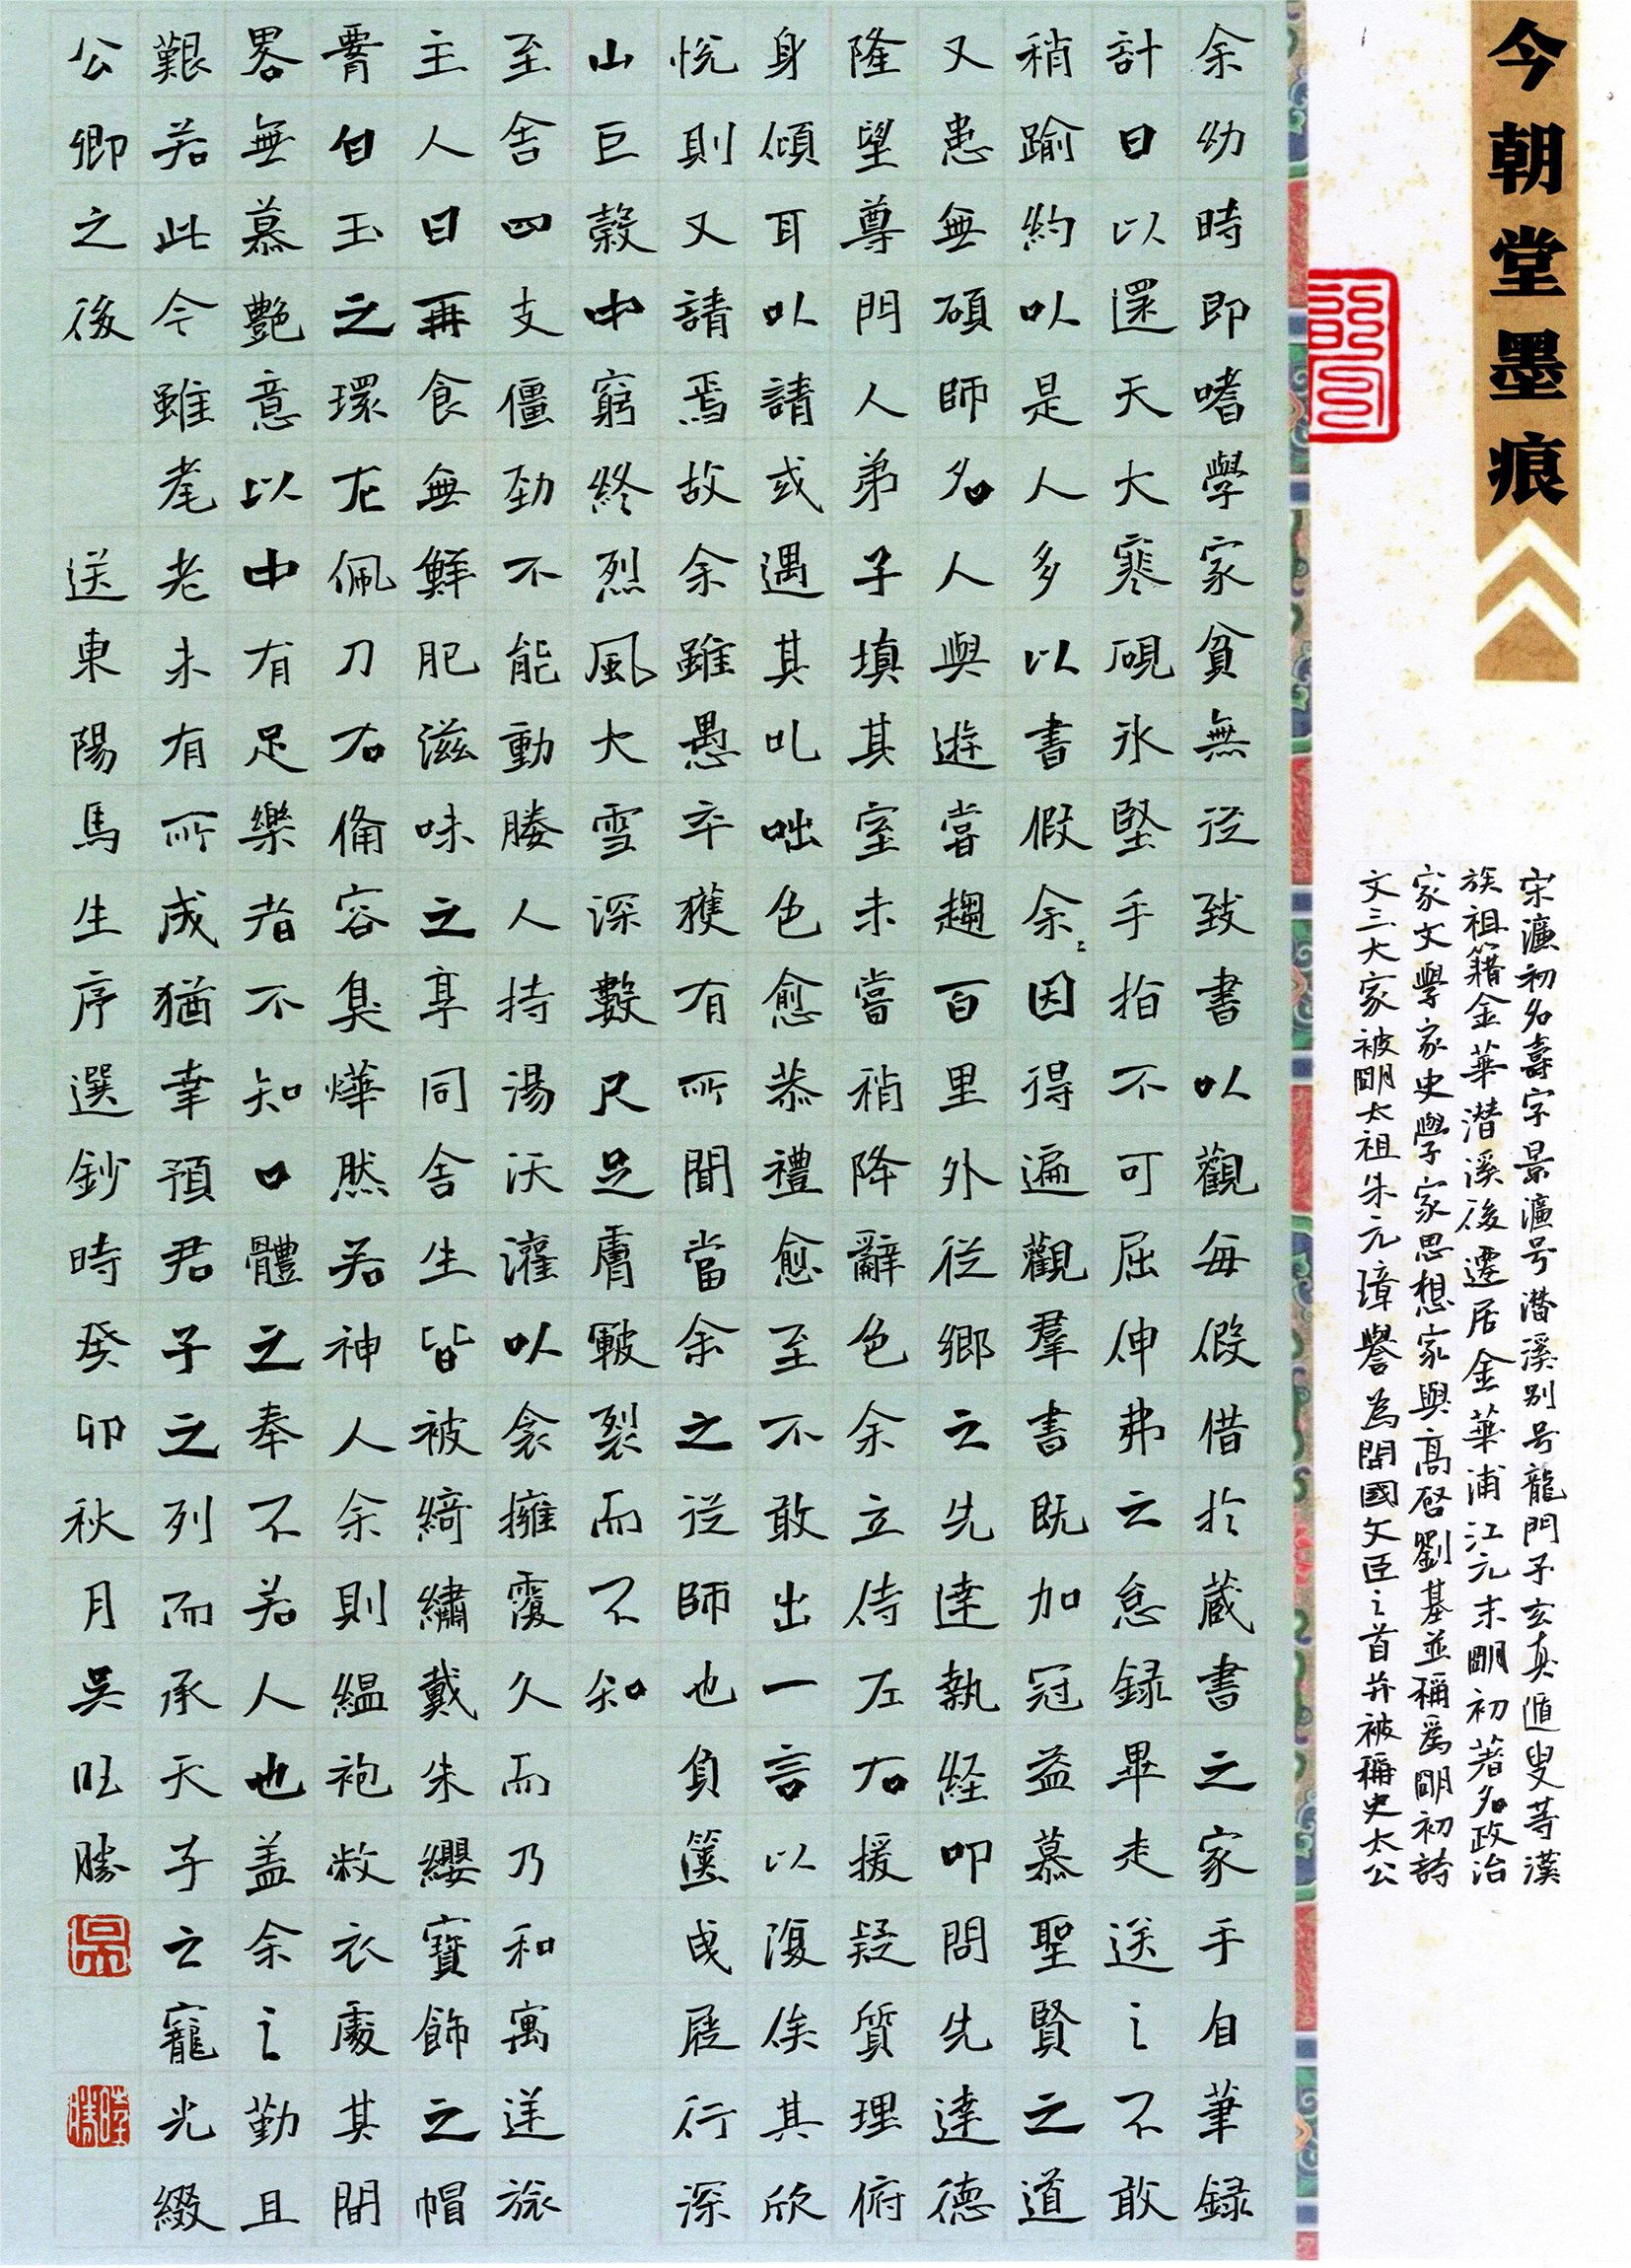 今朝堂墨痕
宋濂初名壽字景濂号潛溪别号龍門子玄真遁叟等漢
族祖籍金華潛溪後遷居金華浦江元末明初著名政治
家文學家史學家思想家與高啓劉基並稱爲明初詩
文三大家被明太祖朱元璋譽為開國文臣之首并被稱史太公
余幼時即嗜學家貧無從致書以觀每假借於藏書之家手自筆録
計日以還天大寒硯冰堅手指不可屈伸弗之怠録畢走送之不敢
稍踰約以是人多以書假余余因得遍觀羣書既加冠益慕聖賢之道
又患無碩師名人與遊嘗趨百里外從鄉之先達執經叩問先達德
隆望尊門人弟子填其室未嘗稍降辭色余立侍左右援疑質理俯
身傾耳以請或遇其叱咄色愈恭禮愈至不敢出一言以復俟其欣
悦則又請焉故余雖愚卒獲有所聞當余之從師也負篋曳屣行深
山巨榖中窮終烈風大雪深數尺足膚皸裂而不知
至舍四支僵勁不能動媵人持湯沃灌以衾擁覆久而乃和寓逆旅
主人日再食無鮮肥滋味之享同舍生皆被綺繡戴朱纓寶飾之帽
腰白玉之環左佩刀右備容臭燁然若神人余則緼袍敝衣處其間
畧無慕艷意以中有足樂者不知口體之奉不若人也盖余之勤且
艱若此今雖耄老未有所成猶幸預君子之列而承天子之寵光綴
公卿之後 送東陽馬生序選鈔時癸卯秋月吳旺勝
吳